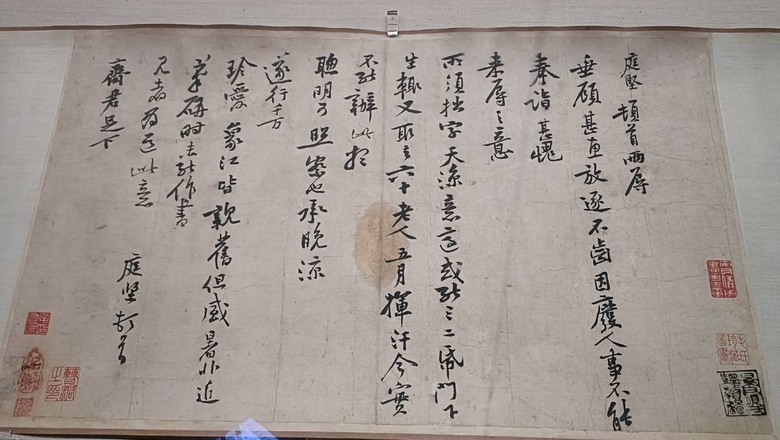 庭堅頓首兩辱
垂顧甚惠放逐不齒因廢人事不能
奉詣甚愧
來辱之意
所須拙字天涼意適或能三二紙門下
生輒又取去六十老人五月揮汗今實
不能辦此想
聰明可照察也承晚涼
遂行千万
珍愛象江皆親舊但盛暑非近
筆研時未能作書
見者為道此意
庭堅頓首
齊君足下